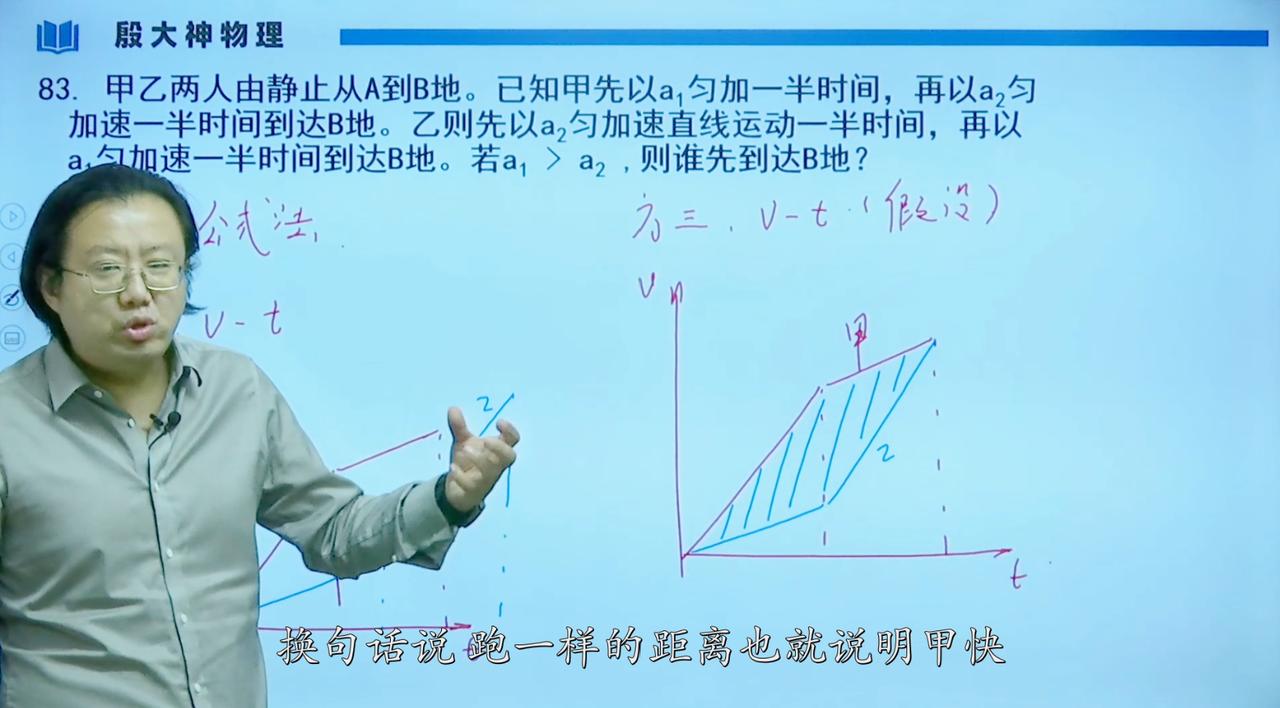 殷大神物理
83. 甲乙两人由静止从A到B地。已知甲先以a₁匀加一半时间，再以a₂匀
加速一半时间到达B地。乙则先以a₂匀加速直线运动一半时间，再以
a₁匀加速一半时间到达B地。若a₁ > a₂ ,则谁先到达B地？
公式法,
方三. v-t.（假设）
v-t
v
甲
乙
t
乙
换句话说 跑一样的距离也就说明甲快